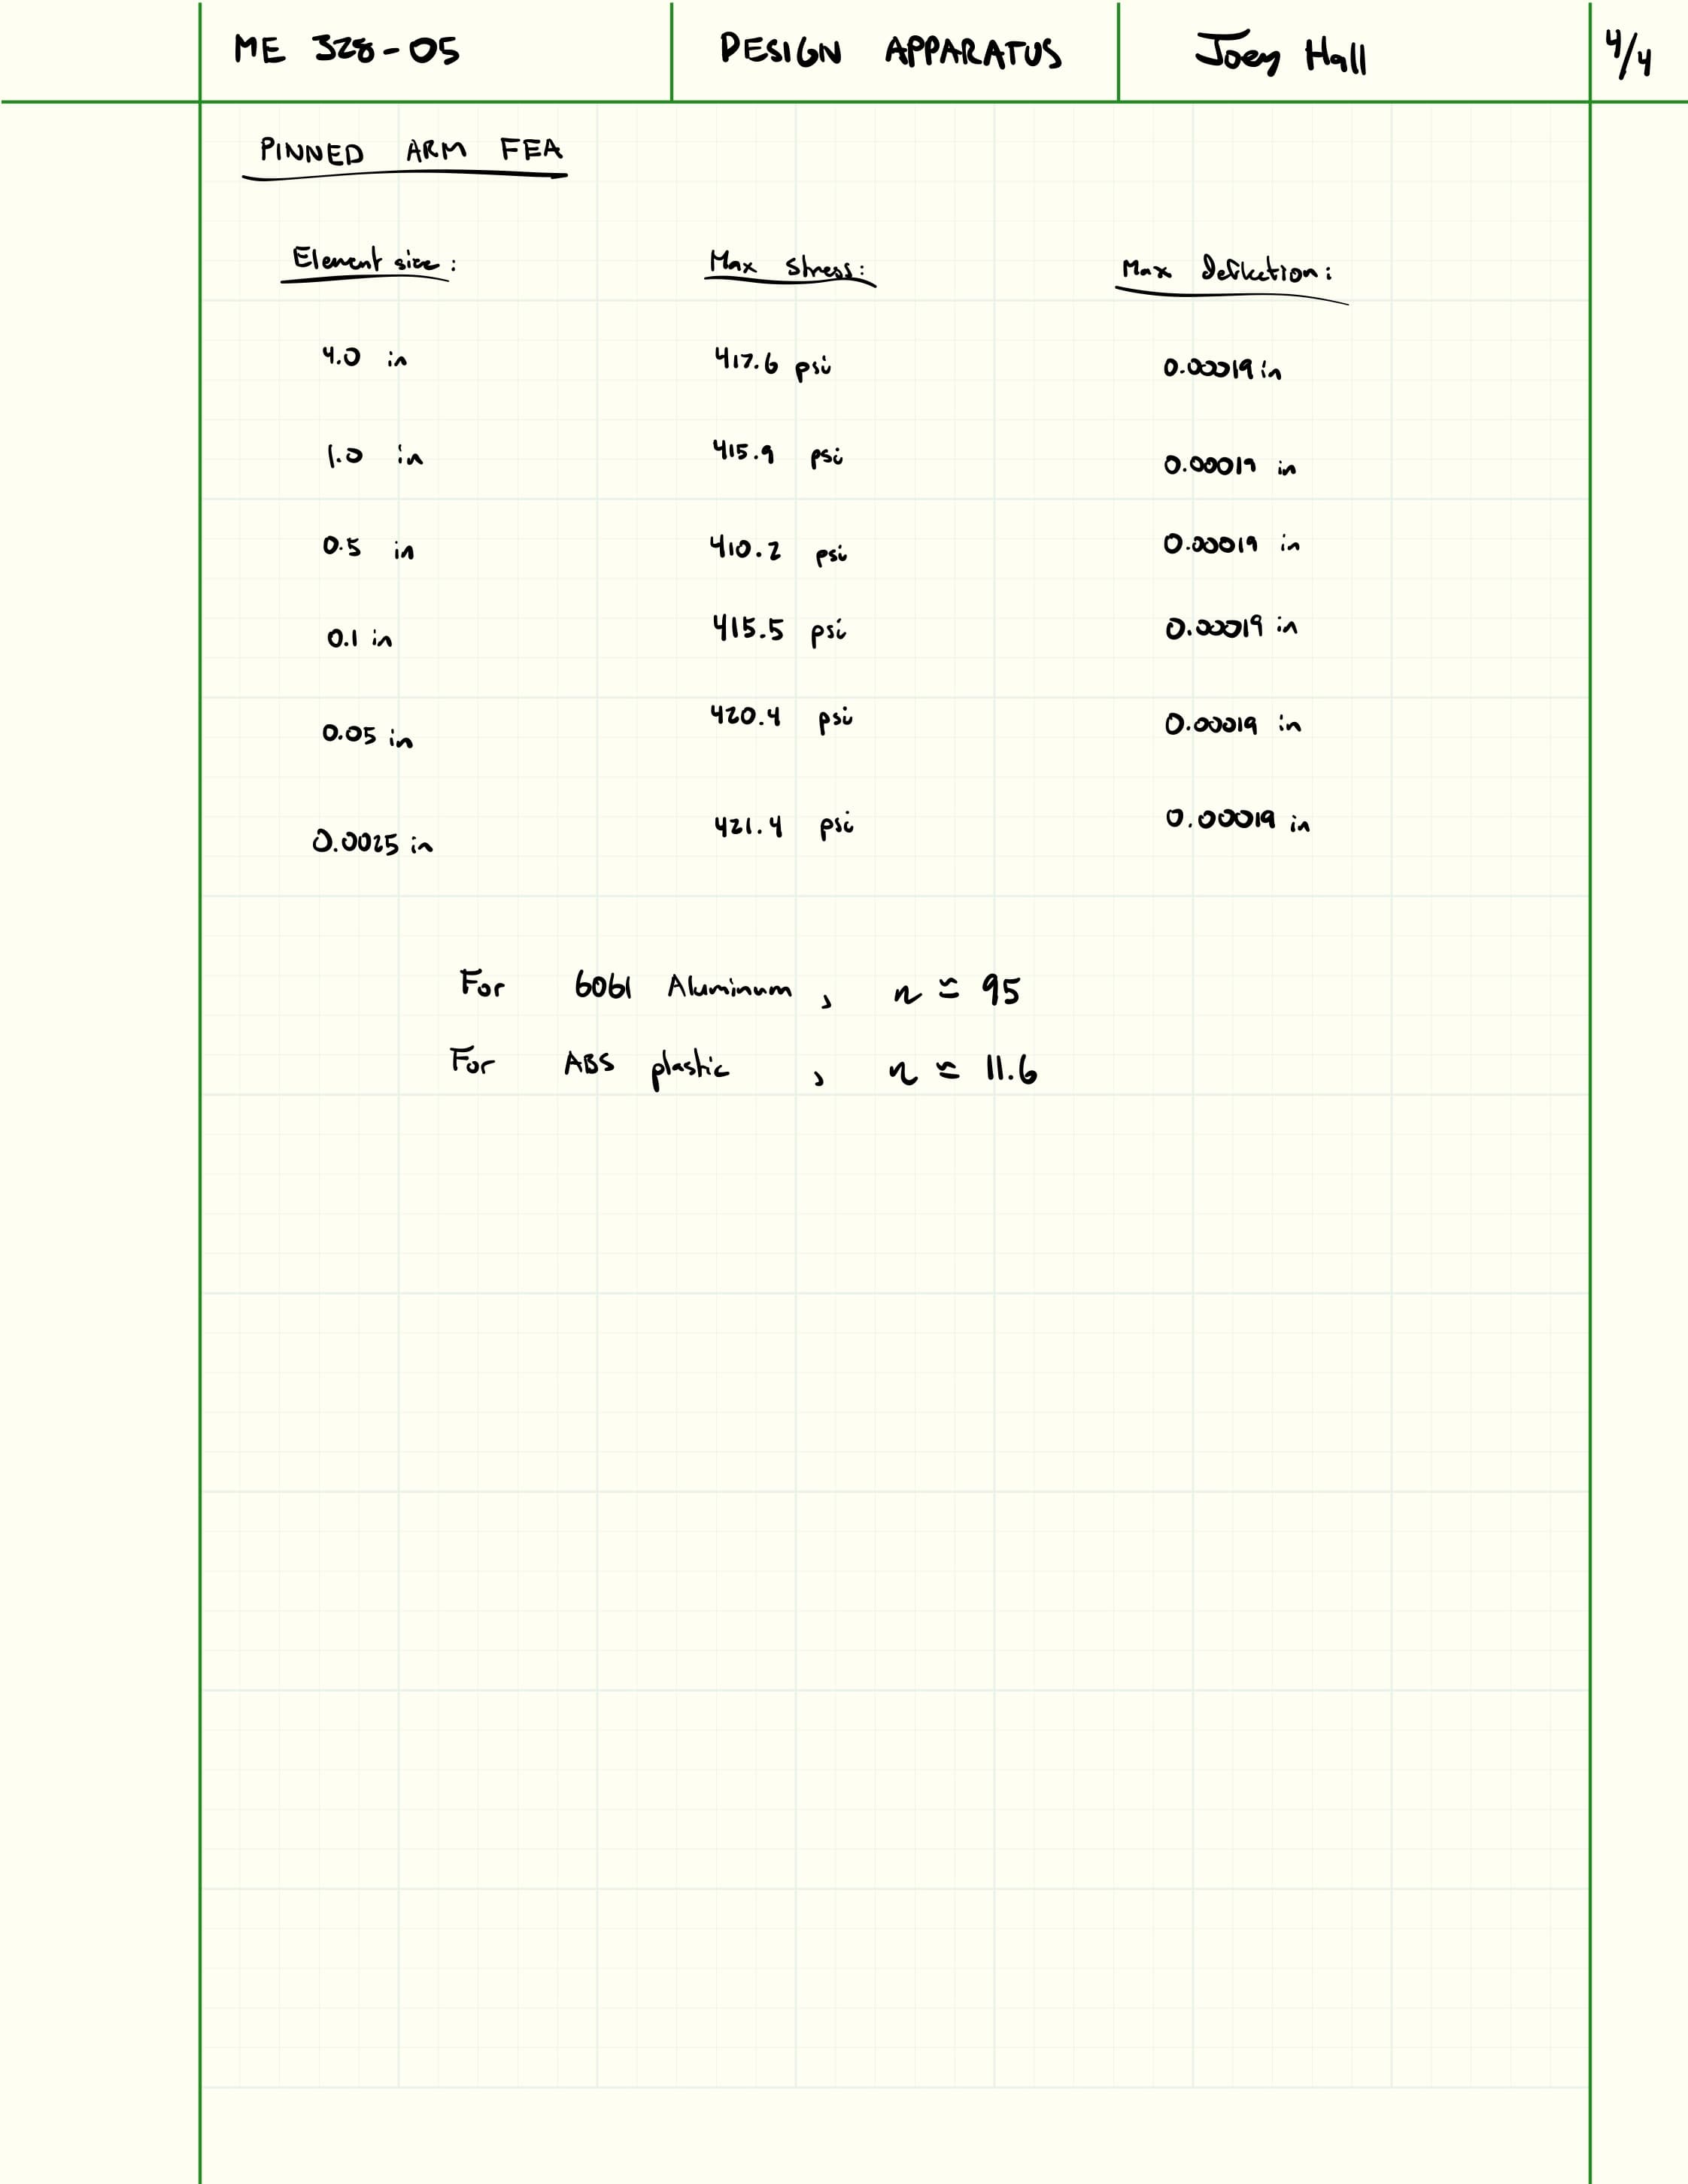 ME 328-05 DESIGN APPARATUS Joey Hall 4/4
PINNED ARM FEA
Element size: Max Stress: Max Deflection:
4.0 in 417.6 psi 0.00019 in
1.0 in 415.9 psi 0.00019 in
0.5 in 410.2 psi 0.00019 in
0.1 in 415.5 psi 0.00019 in
0.05 in 420.4 psi 0.00019 in
0.0025 in 421.4 psi 0.00019 in
For 6061 Aluminum, n ≅ 95
For ABS plastic, n ≅ 11.6